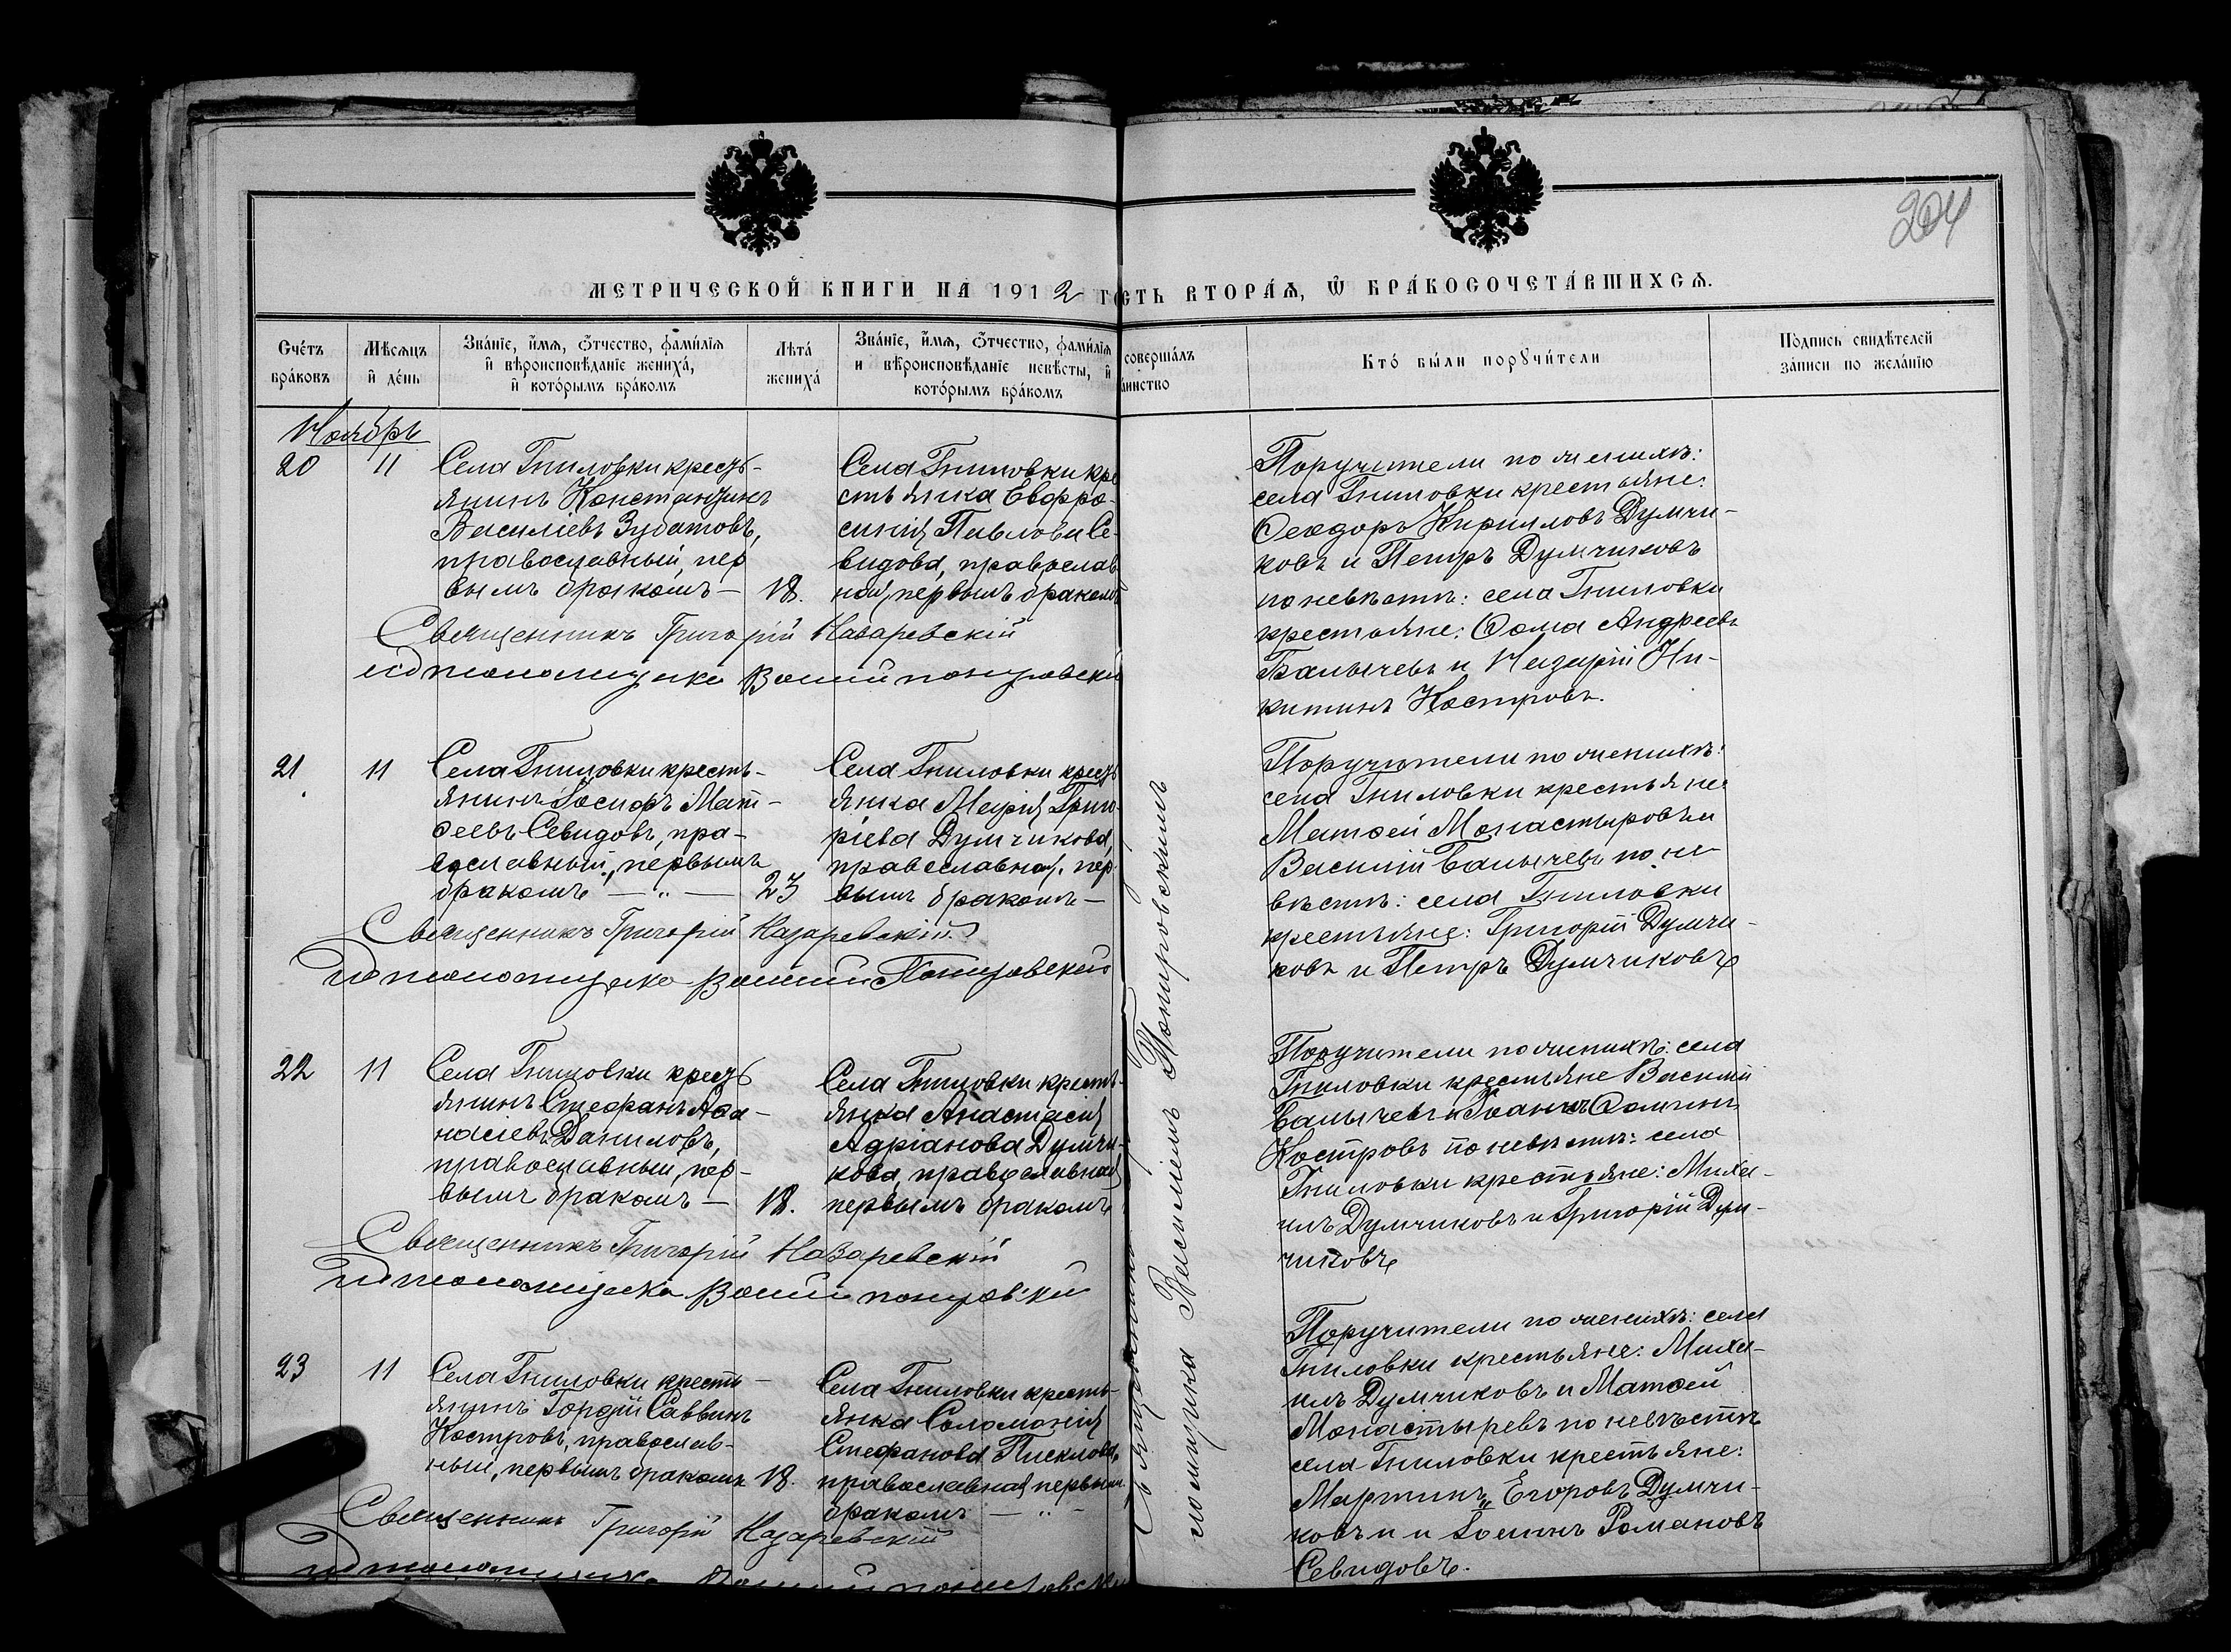 204
МЕТРИЧЕСКОЙ КНИГИ НА 1912 го
сть вторая, ѡ бракосочетавшихсѧ.
Счетъ браковъ
Мѣсѧцъ и день
Званіе, имѧ, ѿчество, фамиліѧ
и вѣроисповѣданіе жениха,
и которымъ бракомъ
Лѣта жениха
Званіе, имѧ, ѿчество, фамиліѧ
и вѣроисповѣданіе невѣсты, и
которымъ бракомъ
совершалъ
аинство
Кто были порꙋчители
Подпись свидѣтелей
записи по желанію
Ноябрь
20 11
Села Гниловки кресть-
янинъ Константинъ
Василіевъ Зубатовъ,
православный, пер
вымъ бракомъ — 18.
Села Гниловки кре
стьянка Евфро-
синія Павлова Се-
видова, православ
ной, первымъ бракомъ
Священникъ Григорій Назаревскій
Поручители по женихѣ:
села Гниловки крестьяне:
Ѳеодоръ Кирилловъ Думчи-
ковъ и Петръ Думчиковъ
по невѣстѣ: села Гниловки
крестьяне: Ѳома Андреевъ
Балычевъ и Назарій Ни-
китинъ Костровъ.
21 11
Села Гниловки кресть-
янинъ Іосифъ Мат-
ѳеевъ Севидовъ, пра-
вославный, первымъ
бракомъ — „ — 23
Села Гниловки кресть
янка Марія Григо-
ріева Думчикова,
православная, пер
вымъ бракомъ —
Священникъ Григорій Назаревскій
Поручители по женихѣ:
села Гниловки крестьяне
Матѳей Монастыровъ и
Василій Балычевъ по не
вѣстѣ: села Гниловки
крестьяне: Григорій Думчи-
ковъ и Петръ Думчиковъ
22 11
Села Гниловки кресть
янинъ Стефанъ Аѳа-
насіевъ Даниловъ,
православный, пер-
вымъ бракомъ — 18.
Села Гниловки кресть-
янка Анастасія
Адріанова Думчи-
кова, православная
первымъ бракомъ
Священникъ Григорій Назаревскій
Поручители по женихѣ: села
Гниловки крестьяне Василій
Балычевъ и Іоаннъ Ѳоминъ
Костровъ по невѣстѣ: села
Гниловки крестьяне: Миха-
илъ Думчиковъ и Григорій Дум-
чиковъ
23 11
Села Гниловки кресть-
янинъ Гордій Саввинъ
Костровъ, православ-
ный, первымъ бракомъ 18.
Села Гниловки кресть-
янка Соломонія
Стефанова Пиклова,
православная первымъ
бракомъ — „ —
Священникъ Григорій Назаревскій
Поручители по женихѣ: села
Гниловки крестьяне: Миха-
илъ Думчиковъ и Матѳей
Монастыревъ по невѣстѣ
села Гниловки крестьяне:
Мартинъ Егоровъ Думчи-
ковъ и
Романовъ
Севидовъ.
ломщика Василіемъ Понировскимъ